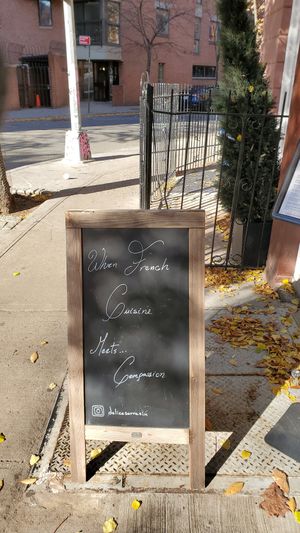 When French
Cuisine
Meets...
Compassion